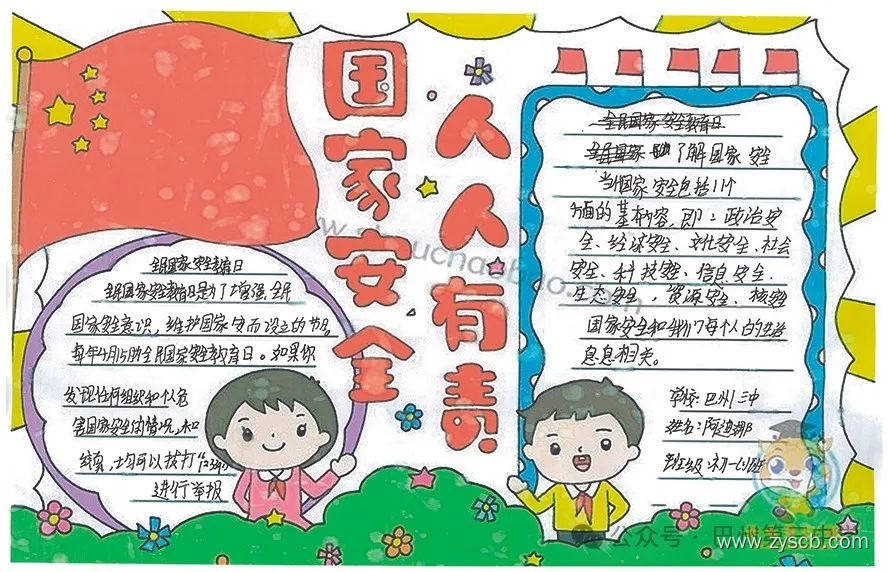 国家安全
人人有责
全民国家安全教育日
全民国家安全教育日是为了增强全民
国家安全意识，维护国家安而设立的节日，
每年4月15日为全民国家安全教育日。如果你
发现任何组织和个危
害国家安全的情况，和
线索，均可以拨打"12339"
进行举报
全民国家安全教育日
了解国家安全
当代国家安全包括11个
方面的基本内容，即：政治安
全、经济安全、文化安全、社会
安全、科技安全、信息安全、
生态安全，资源安全、核安全
国家安全和我们每个人的生活
息息相关。
学校：巴州三中
姓名：阿迪娜
班级：初一
公众号·巴州第三中
www.zyscb.com